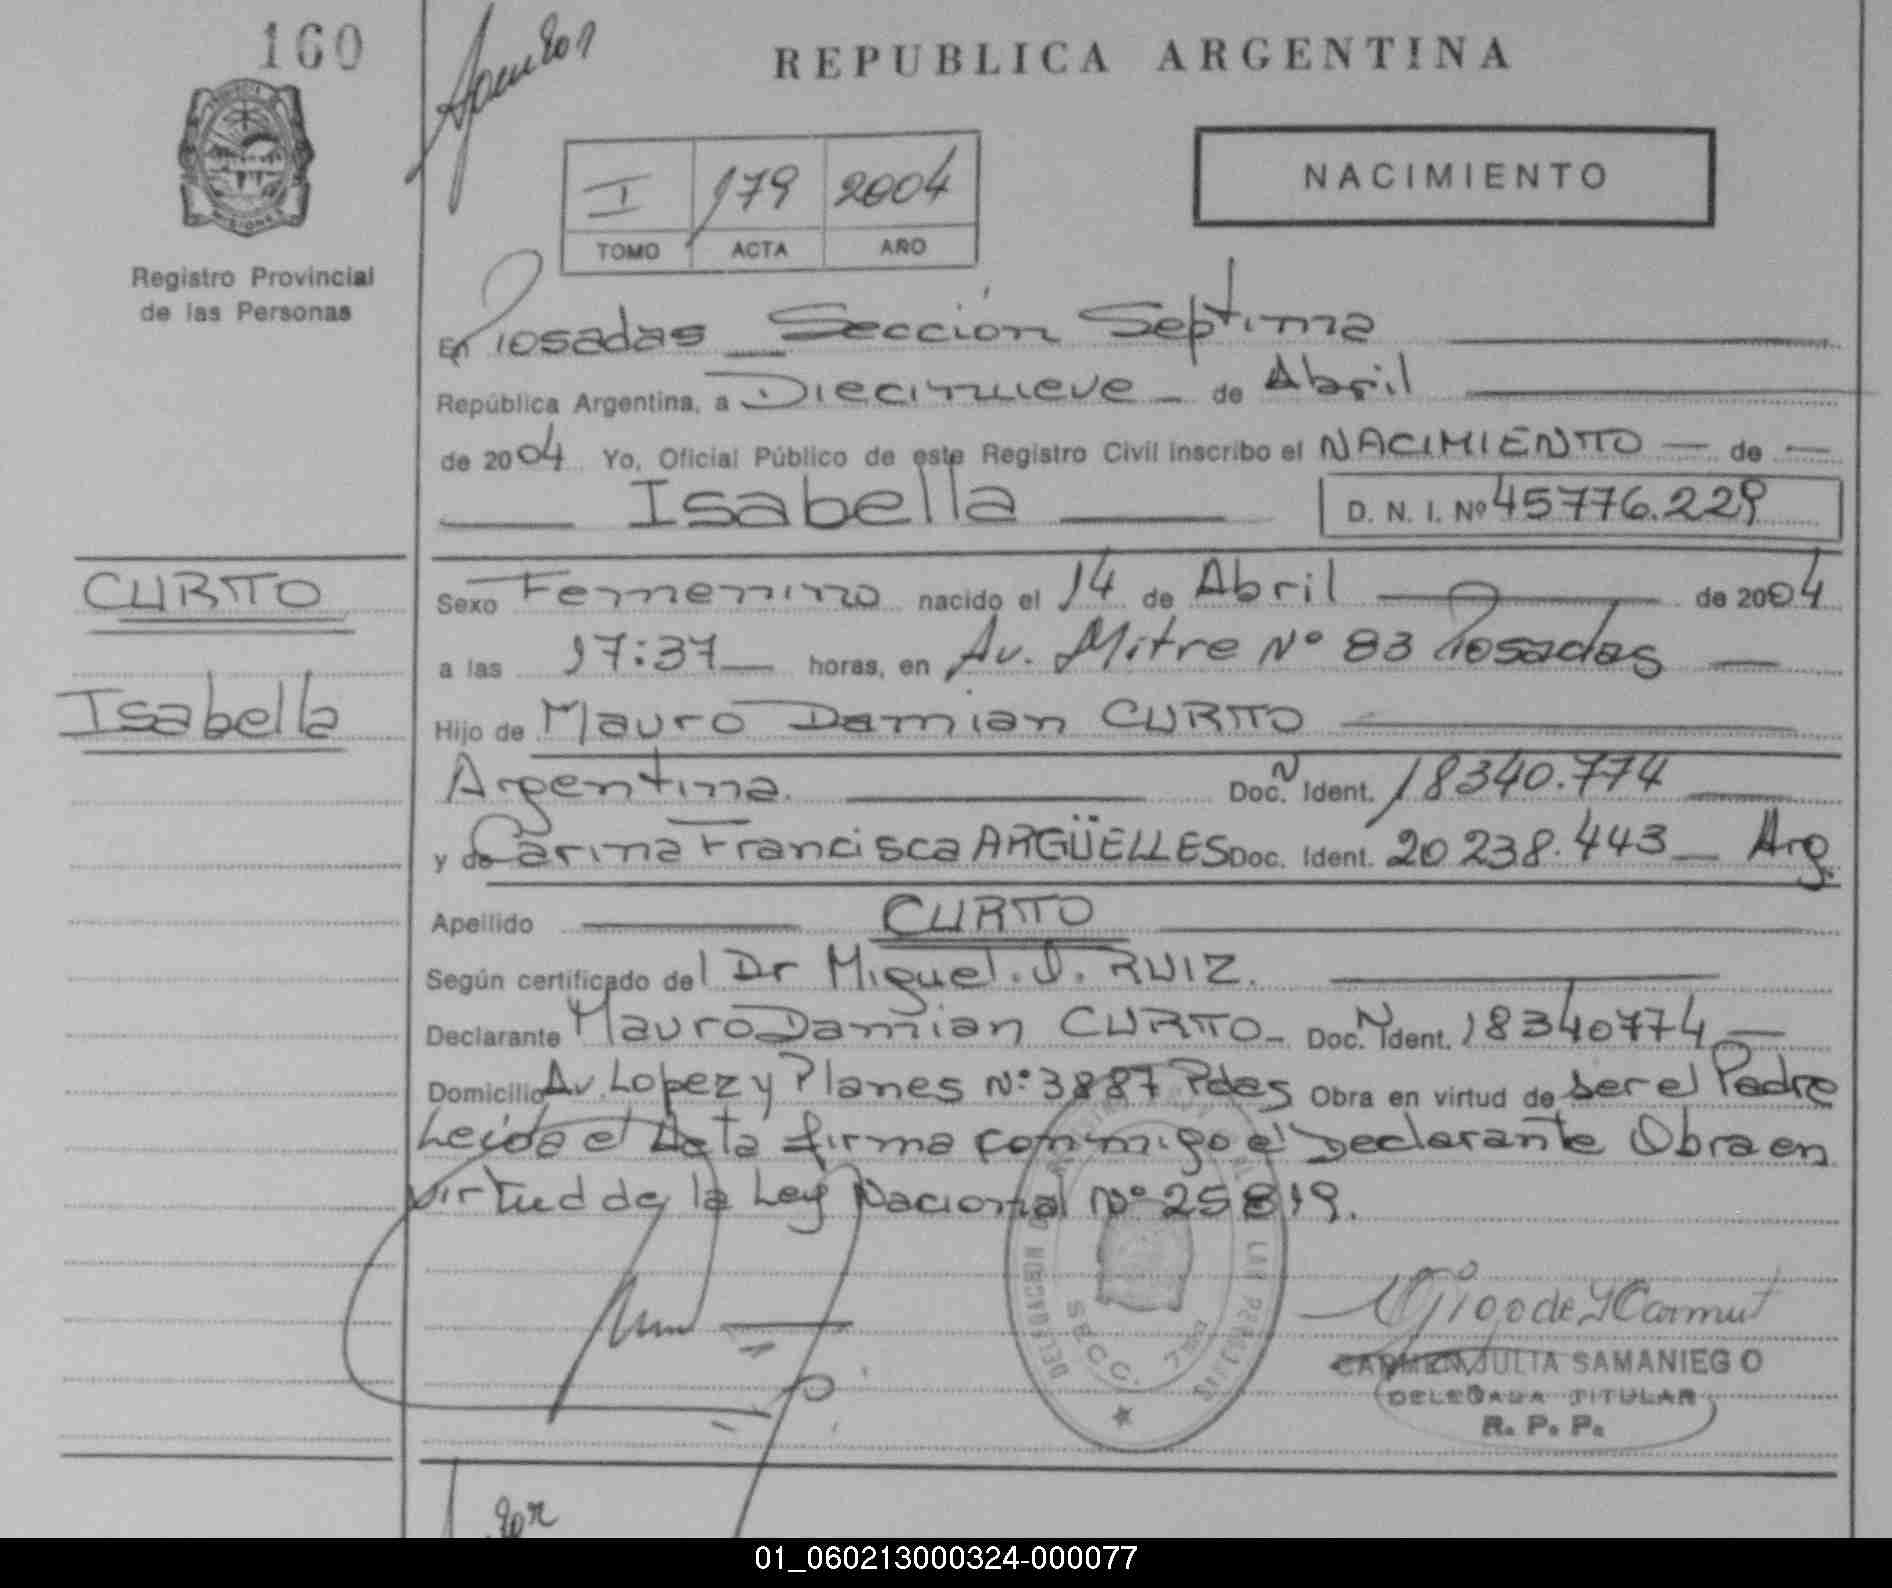 160
REPUBLICA ARGENTINA
NACIMIENTO
I 179 2004
TOMO ACTA AÑO
Registro Provincial
de las Personas
En Posadas Sección Septima
República Argentina, a Diecinueve de Abril
de 2004 Yo, Oficial Público de este Registro Civil inscribo el NACIMIENTO de
Isabella D. N. I. Nº 45776.229
CURTO
Isabella
Sexo Femenino nacido el 14 de Abril de 2004
a las 17:37 horas, en Av. Mitre Nº 83 Posadas
Hijo de Mauro Damian CURTO
Argentina. Doc. N Ident. 18340.774
y de Carina Francisca ARGÜELLES Doc. Ident. 20238.443 Arg.
Apellido CURTO
Según certificado del Dr Miguel. D. RUIZ.
Declarante Mauro Damian CURTO Doc. N Ident. 18340774
Domicilio Av. Lopez y Planes Nº 3887 Pdas Obra en virtud de ser el Padre
Leida el Acta firma conmigo el Declarante Obra en
virtud de la Ley Nacional Nº 25819.
SECC. 7MA
CARMEN JULIA SAMANIEGO
DELEGADA TITULAR
R. P. P.
01_060213000324-000077